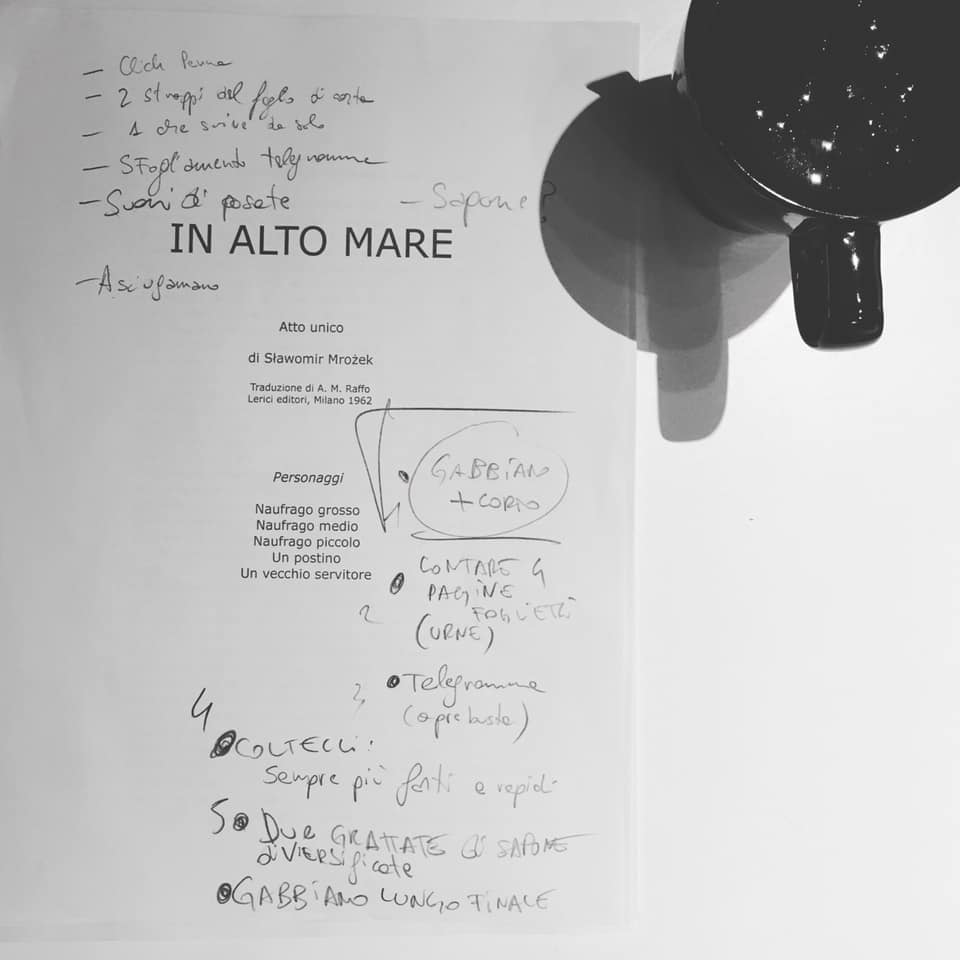 – Click Penna
– 2 strappi del foglio di carta
– 1 che scrive da solo
– Sfogliamento telegramma
– Suoni di posate
– Sapone?
IN ALTO MARE
– Asciugamano
Atto unico
di Sławomir Mrożek
Traduzione di A. M. Raffo
Lerici editori, Milano 1962
Personaggi
Naufrago grosso
Naufrago medio
Naufrago piccolo
Un postino
Un vecchio servitore
1 • GABBIANO
+ CORTO
2 • CONTARE 4
PAGINE
FOGLIETTI
(URNE)
3 • Telegramma
(apre busta)
4 • COLTELLI:
Sempre più forti e rapidi
5 • DUE GRATTATE di SAPONE
diversificate
• GABBIANO LUNGO FINALE